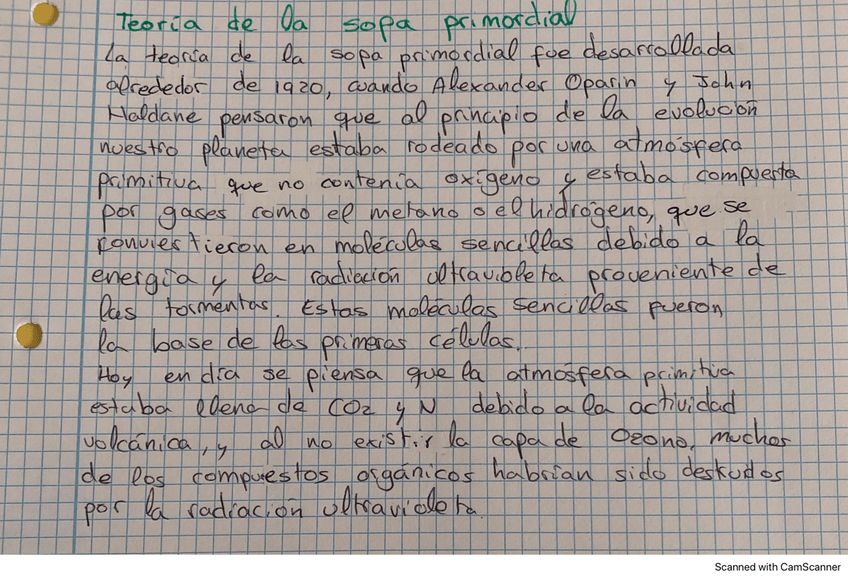 Teoría de la sopa primordial
La teoría de la sopa primordial fue desarrollada
alrededor de 1920, cuando Alexander Oparin y John
Haldane pensaron que al principio de la evolución
nuestro planeta estaba rodeado por una atmósfera
primitiva que no contenía oxígeno y estaba compuesta
por gases como el metano o el hidrógeno, que se
convirtieron en moléculas sencillas debido a la
energía y la radiación ultravioleta proveniente de
las tormentas. Estas moléculas sencillas fueron
la base de las primeras células.
Hoy en día se piensa que la atmósfera primitiva
estaba llena de CO2 y N debido a la actividad
volcánica, y al no existir la capa de Ozono, muchos
de los compuestos orgánicos habrían sido destruidos
por la radiación ultravioleta.
Scanned with CamScanner